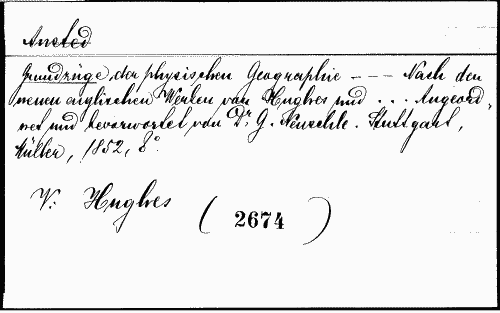 Ansted
Grundzüge der physischen Geographie --- Nach den
neuen englischen Werken von Hughes und ... Angeord,
net und bevorwortet von Dr. G. Reuschle. Stuttgart,
Müller, 1852, 8°.
V: Hughes (2674)